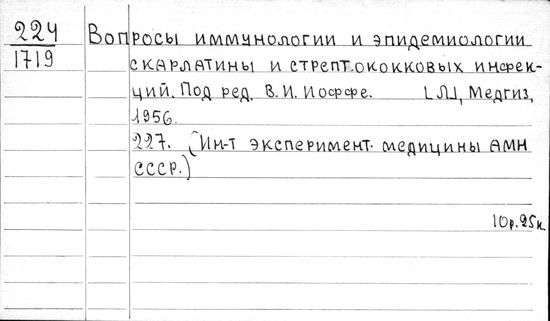 224
1719
Вопросы иммунологии и эпидемиологии
скарлатины и стрептококковых инфек-
ций. Под ред. В. И. Иоффе. [Л.], Медгиз,
1956.
227. (Ин-т эксперимент. медицины АМН
СССР.)
10р.25к.